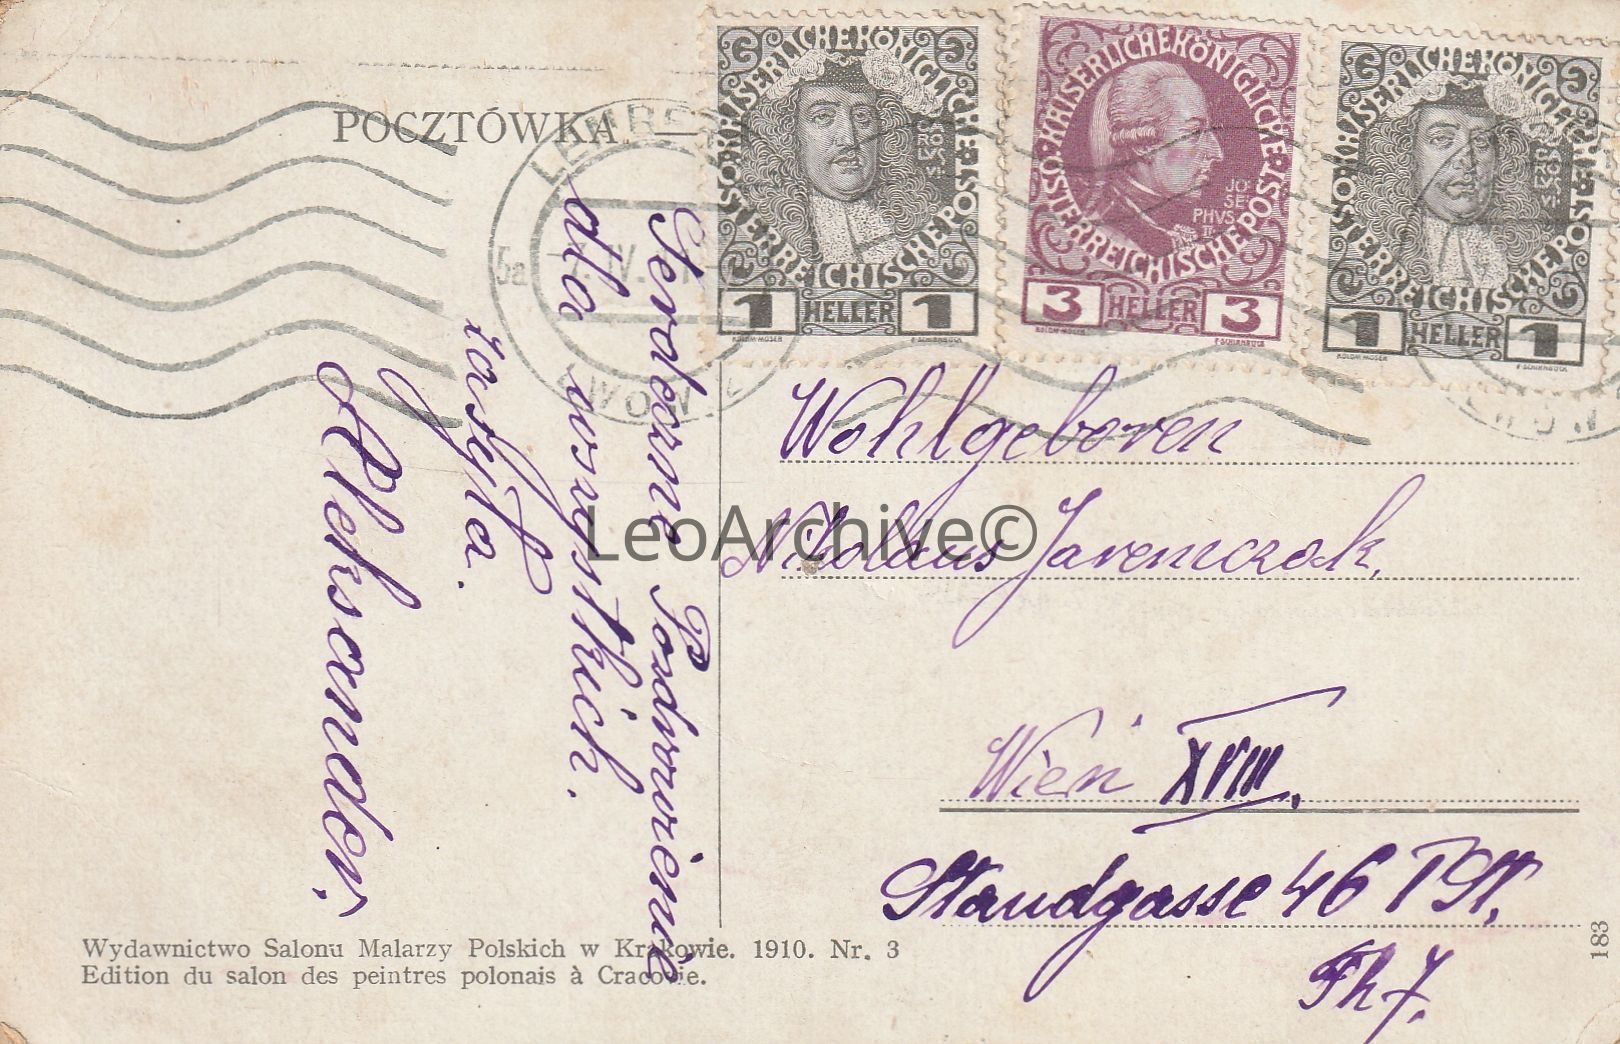 POCZTÓWKA
KAISERLICHEKÖNIGLICHE
ÖSTERREICHISCHEPOST
CAROLVS VI
1 HELLER 1
KOLOM·MOSER F·SCHIRNBÖCK
KAISERLICHEKÖNIGLICHE
ÖSTERREICHISCHEPOST
JOSEPHVS II
3 HELLER 3
KOLOM·MOSER F·SCHIRNBÖCK
KAISERLICHEKÖNIGLICHE
ÖSTERREICHISCHEPOST
CAROLVS VI
1 HELLER 1
KOLOM·MOSER F·SCHIRNBÖCK
LEMBERG
5a
IV
LWÓW 2
Serdeczne Pozdrowienie
dla wszystkich
zasyła
Aleksander.
Wohlgeboren
Nikolaus Jaremczak.
Wien XVIII.
Staudgasse 46 I St.
Th 7.
LeoArchive©
Wydawnictwo Salonu Malarzy Polskich w Krakowie. 1910. Nr. 3
Edition du salon des peintres polonais à Cracovie.
183